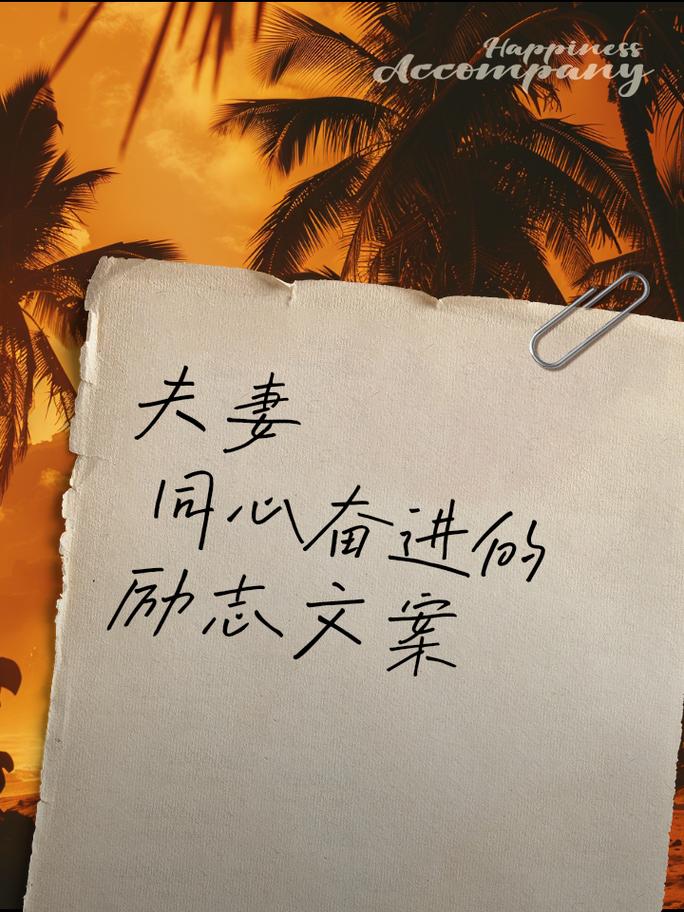 Happiness
Accompany
夫妻
同心奋进的
励志文案